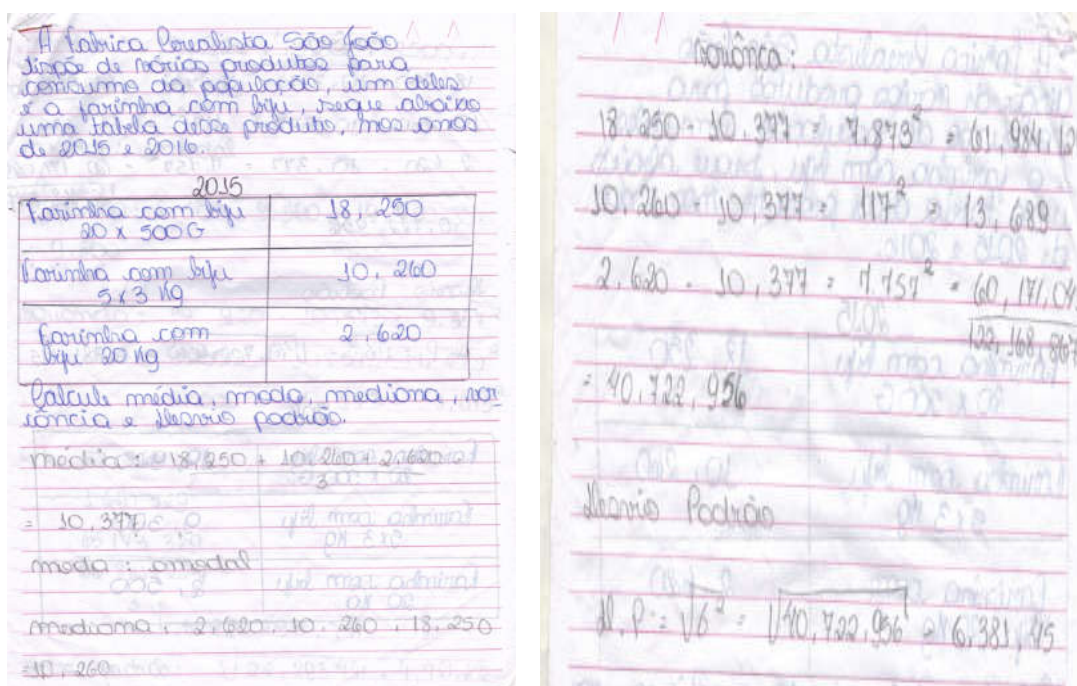 A Fabrica Cerealista São João
dispõe de vários produtos para
consumo da população, um deles
é a farinha com biju, segue abaixo
uma tabela desse produto, nos anos
de 2015 e 2016.
2015
Farinha com biju 18,250
20 x 500G
Farinha com biju 10,260
5x3 Kg
Farinha com 2,620
biju 20 Kg
Calcule média, moda, mediana, var
iância e desvio padrão.
média: 18,250 + 10,260 + 2,620
3
= 10,377
moda: amodal
mediana: 2,620, 10,260, 18,250
= 10,260
Variânca:
18,250 - 10,377 = 7,873² = 61,984,12
10,260 - 10,377 = 117² = 13,689
2,620 - 10,377 = 7.757² = 60,171,04
122,168,867
= 40,722,956
Desvio Padrão
D.P = √6² = √40,722,956 = 6,381,45